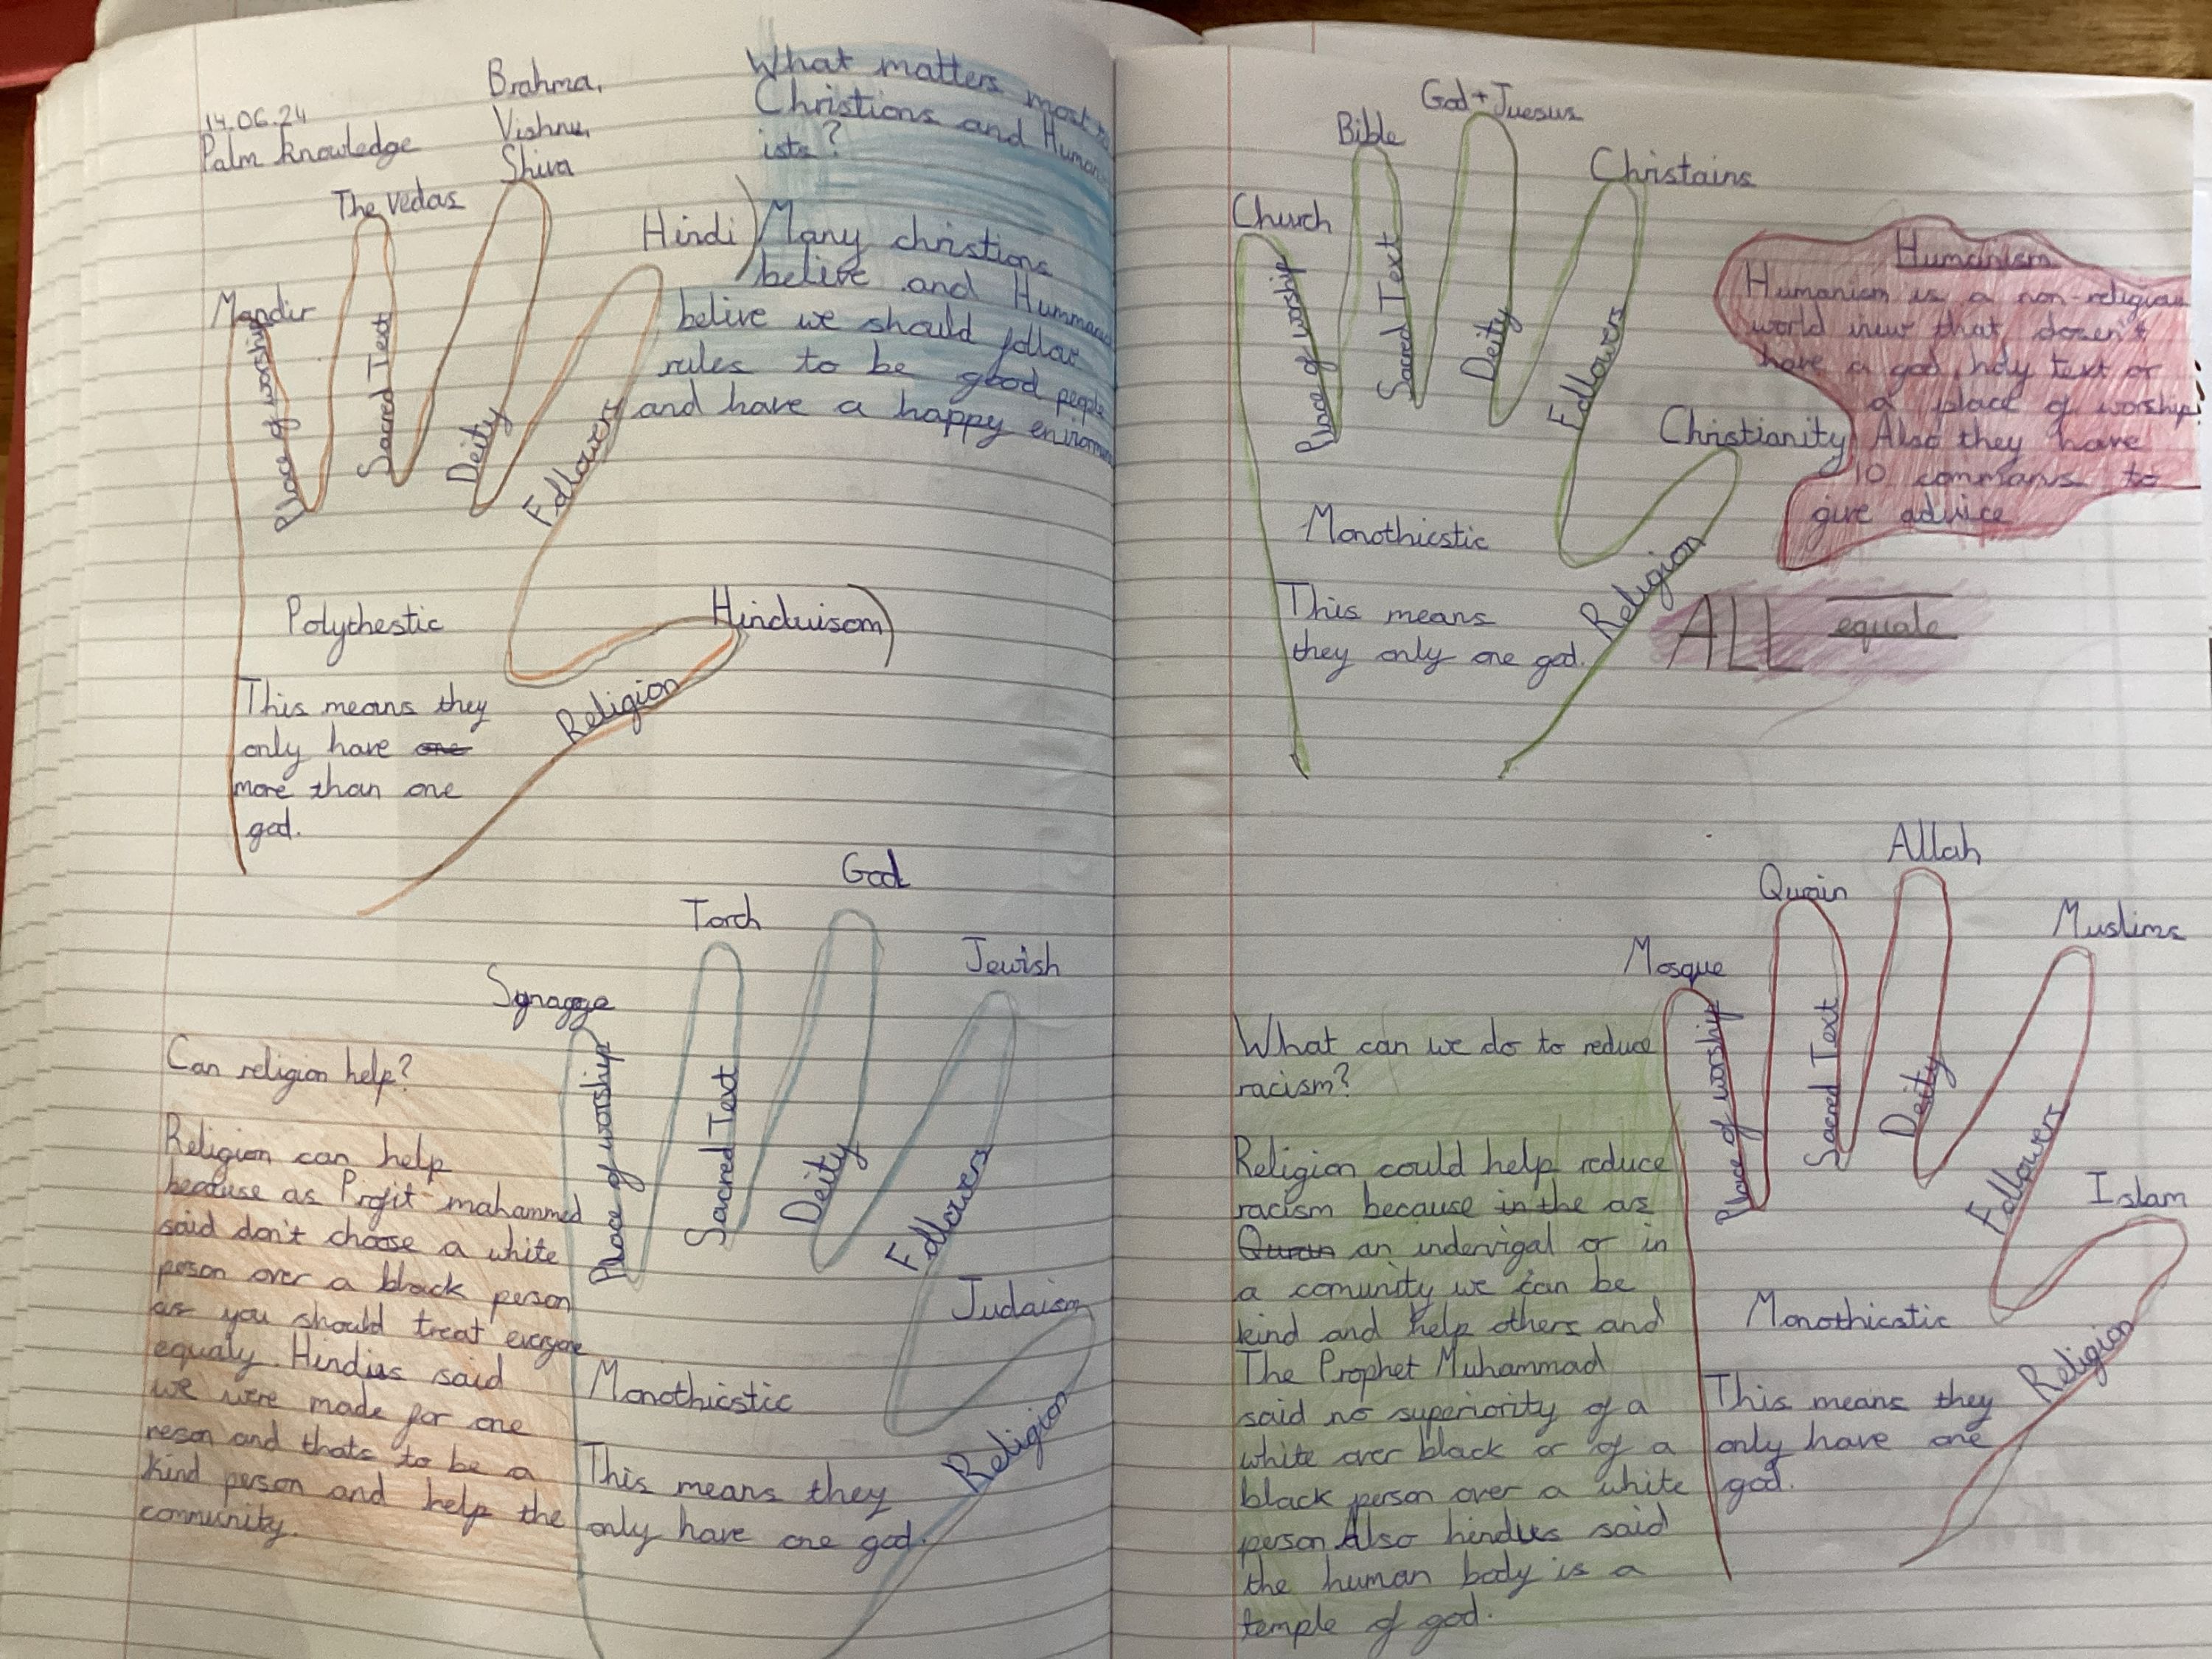 14.06.24
Palm knowledge
Brahma,
Vishnu,
Shiva
The Vedas
Mandir
Hindi
Place of worship
Sacred Text
Deity
Followers
Hinduisom
Religion
Polythestic
This means they
only have one
more than one
god.
What matters most to
Christions and Human
ists?
Many christions
belive and
belive we should follow
rules to be good people
and have a happy
God
Torch
Jewish
Synagge
Place of worship
Sacred Text
Deity
Followers
Judaism
Religion
Monothicstic
This means they
only have one god.
Can religion help?
Religion can help
because as Profit mahammed
said don't choose a white
person over a black person
as you should treat everyone
equaly. Hindius said
we were made for one
reson and thats to be a
kind person and help the
community.
God + Juesus
Bible
Christains
Church
Place of worship
Sacred Text
Deity
Followers
Christianity
Religion
Monothicstic
This means
they only one god.
Humanism
Humanism is a non-religious
world view that dozen't
have a god, holy text or
a place of worship.
Also they have
10 commans to
give advice
ALL equale
Allah
Qurain
Muslims
Mosque
Place of worship
Sacred Text
Deity
Followers
Islam
Religion
Monothicstic
This means they
only have one
god.
What can we do to reduce
racism?
Religion could help reduce
racism because in the as
Quran an indervigal or in
a comunity we can be
kind and help others and
The Prophet Muhammad
said no superiority of a
white over black or of a
black person over a white
person. Also hindus said
the human body is a
temple of god.